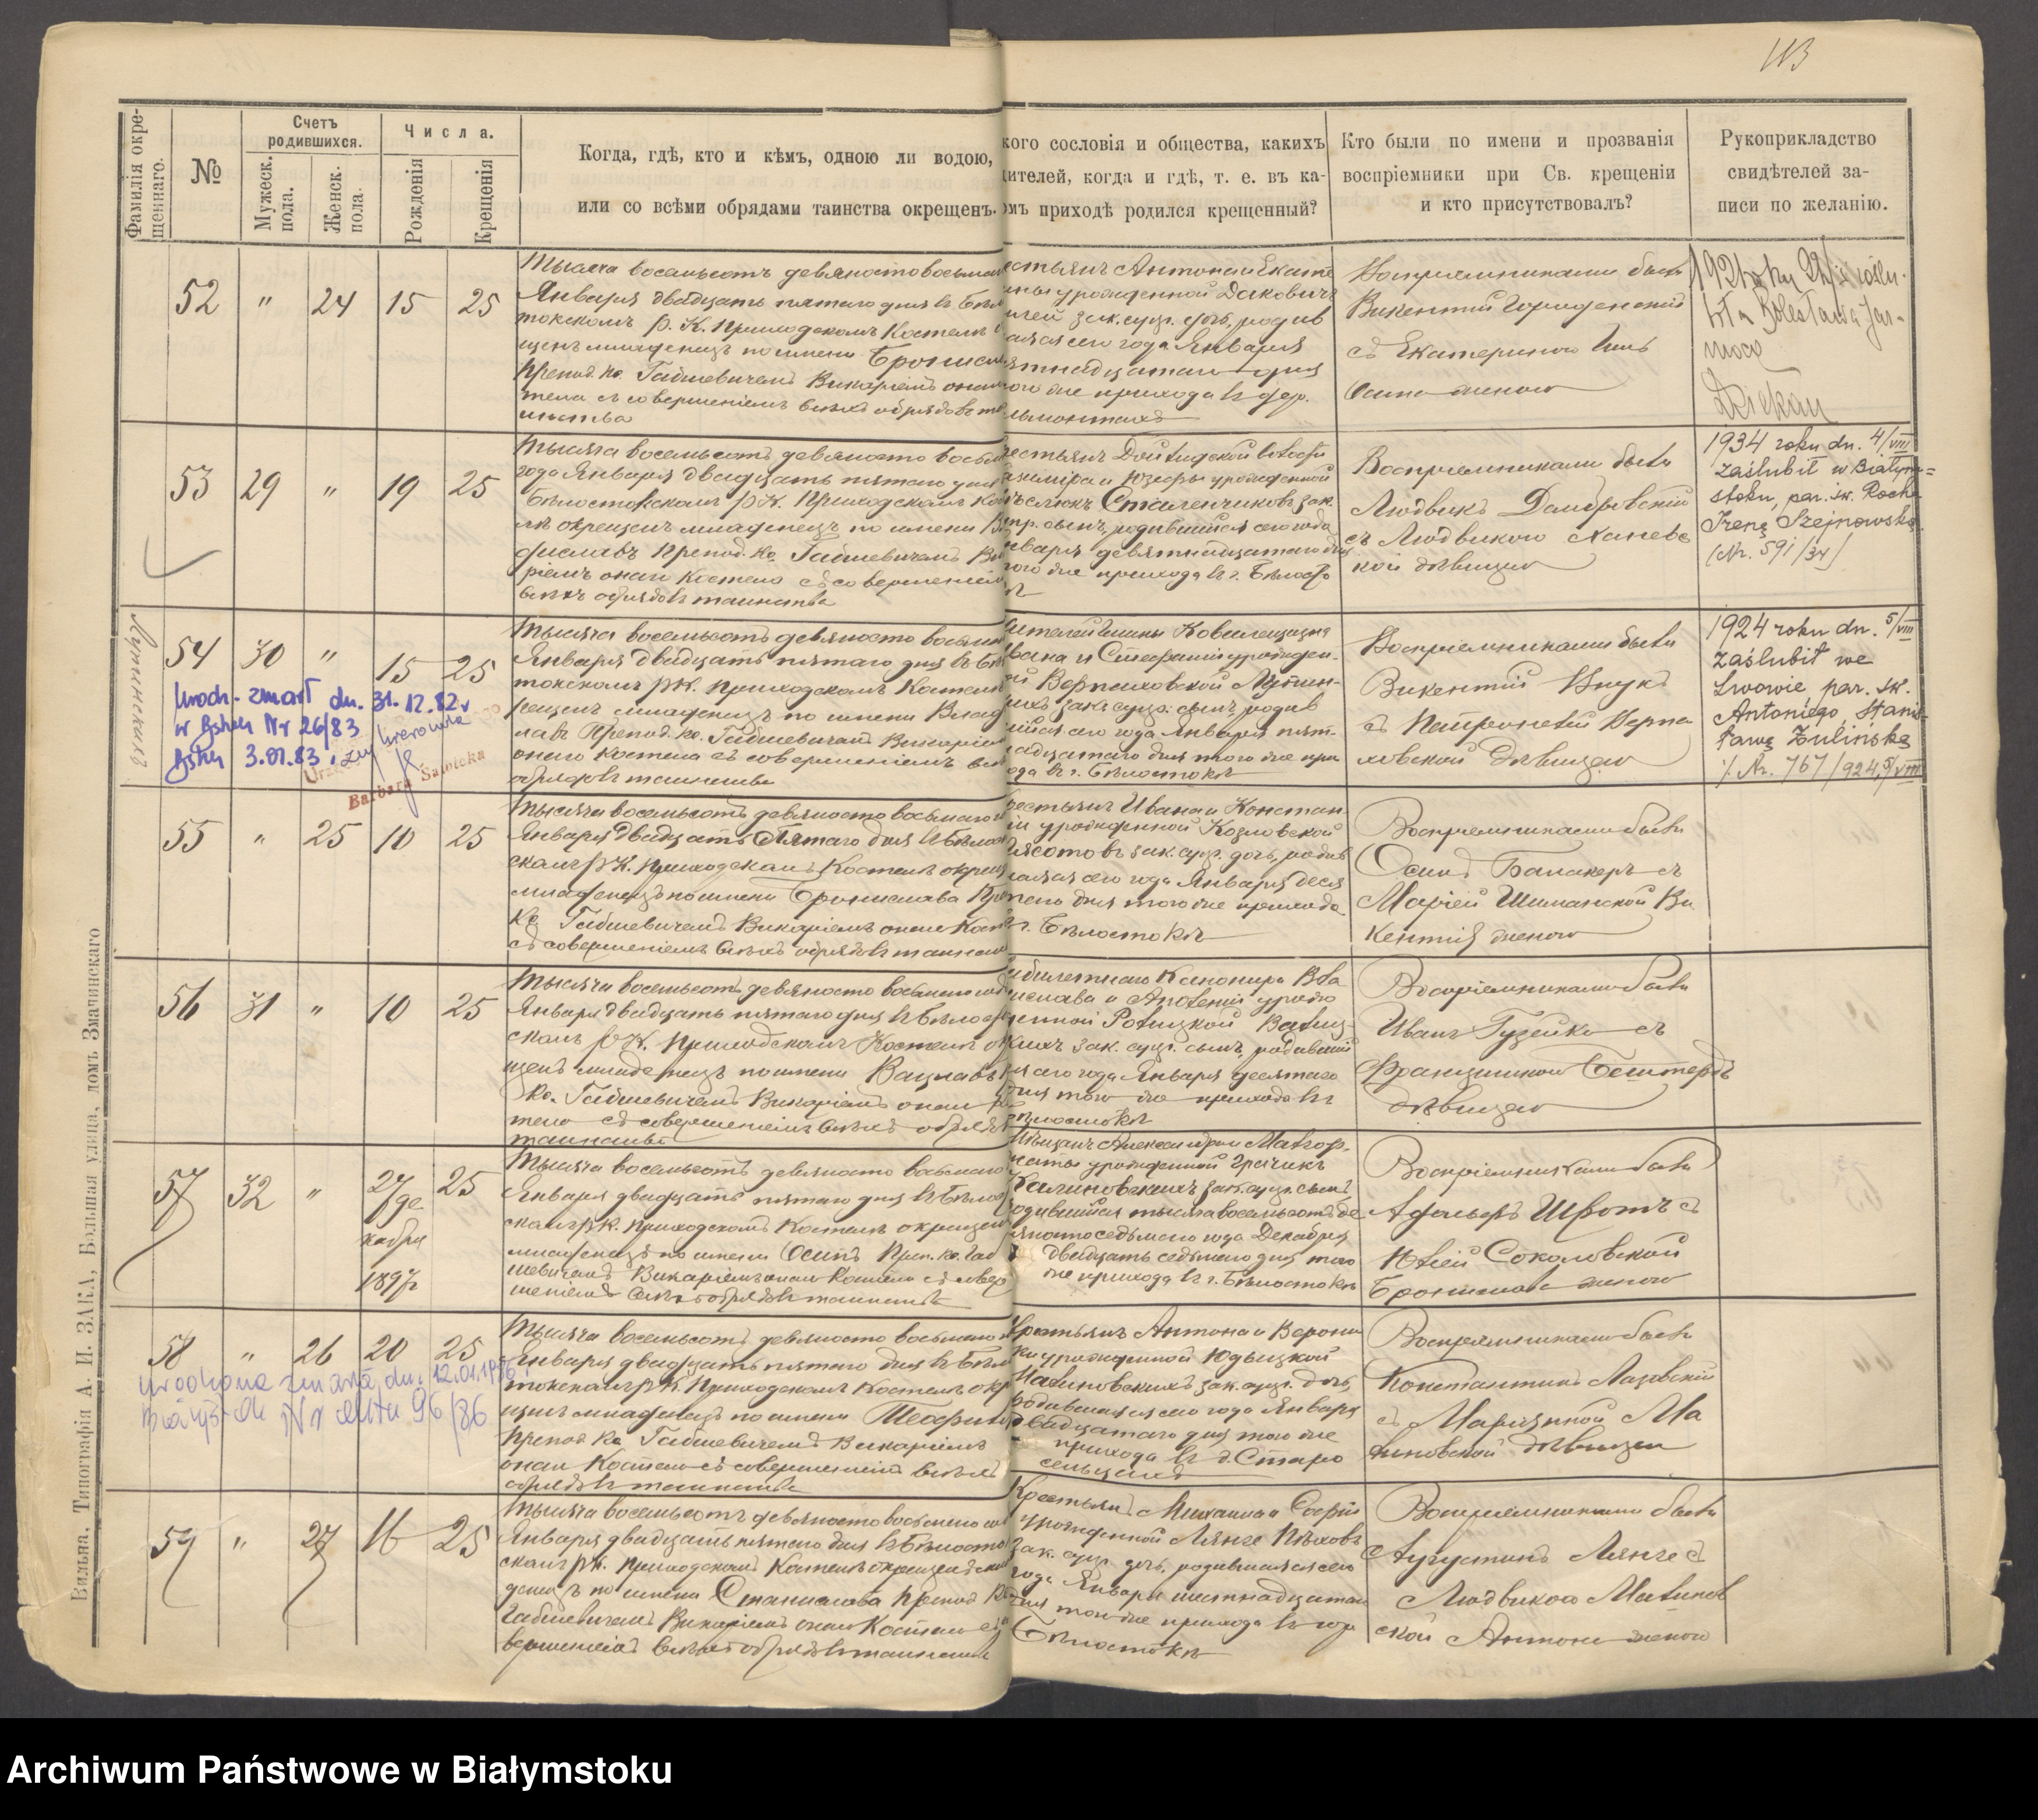 113
Фамилія окре-
щеннаго.
№
Счетъ
родившихся.
Мужеск.
пола.
Женск.
пола.
Числа.
Рожденія
Крещенія
Когда, гдѣ, кто и кѣмъ, одною ли водою,
или со всѣми обрядами таинства окрещенъ.
кого сословія и общества, какихъ
дителей, когда и гдѣ, т. е. въ ка-
омъ приходѣ родился крещенный?
Кто были по имени и прозванія
воспріемники при Св. крещеніи
и кто присутствовалъ?
Рукоприкладство
свидѣтелей за-
писи по желанію.
52 " 24 15 25
Тысяча восемьсотъ девяносто восьмаго
Января двадцать пятаго дня въ Бѣло
токскомъ Р. К. Приходскомъ Костелѣ
щенъ младенецъ по имени
Препод. Кс. Габшевичемъ Викаріемъ онаго
тела съ совершеніемъ всѣхъ обрядовъ та
инства
естьянъ Антона и Екате
ины урожденной
зак. супр. дочь, родив
аяся сего года Января
ятнадцатаго дня
ого же прихода въ дер.
Воспріемниками были
Викентій
съ Екатериною
Осипа женою
1921
Bolesława Jar-
Dziekan
53 29 " 19 25
Тысяча восемьсотъ девяносто восьма
года Января двадцать пятаго дня
Бѣлостокскомъ Р. К. Приходскомъ Ко
лѣ окрещенъ младенецъ по имени В
диславъ Препод. Кс. Габшевичемъ Ви
ріемъ онаго Костела съ совершеніемъ
всѣхъ обрядовъ таинства
естьянъ Дойлидской волости
азиміра и Юзефы урожденной
зак.
упр. сынъ, родившійся сего года
нваря девятнадцатаго дня
того же прихода въ г. Бѣлосто
кѣ
Воспріемниками были
Людвикъ Домбровскій
съ Людвикою Ханевс
кой дѣвицею
1934 roku dn. 4/VIII
zaślubił w Białym=
stoku, par. św. Rocha
Irenę Szejnowską
(Nr. 591/34)
Лупинскихъ
54 30 " 15 25
Тысяча восемьсотъ девяносто восьма
Января двадцать пятаго дня въ Бѣ
токскомъ Р. К. Приходскомъ Костелѣ
рещенъ младенецъ по имени Влад
лавъ Препод. Кс. Габшевичемъ Викаріем
онаго Костела съ совершеніемъ всѣ
обрядовъ таинства
Ивана и Стефаніи урожден-
ой Верпаховской Лупин-
скихъ зак. супр. сынъ, родив
шійся сего года Января пят-
надцатаго дня того же при
хода въ г. Бѣлостокѣ
Воспріемниками были
Викентій Внукъ
съ Петронелей Верпа
ховской дѣвицею
1924 roku dn. 5/VIII
zaślubił we
Lwowie, par. św.
Antoniego, Stanis-
ławę Zulińską
/. Nr. 767/924, 5/VIII
Uroch. zmarł dn. 31.12.82 r
w Bstku Nr 26/83
Bstku 3.01.83.
Barbara Sawicka
55 " 25 10 25
Тысяча восемьсотъ девяносто восьмаго г
Января двадцать Пятаго дня въ Бѣлост
скомъ Р. К. Приходскомъ Костелѣ окрещ
младенецъ по имени Бронислава Пр
Кс. Габшевичемъ Викаріемъ онаго Кост
съ совершеніемъ всѣхъ обрядовъ таинства
рестьянъ Ивана и Констан-
іи урожденной Козловской
зак. супр. дочь, родив
шаяся сего года Января деся
таго дня того же прихода
въ г. Бѣлостокѣ
Воспріемниками были
Осипъ съ
Маріей Шиманской Ви
кентія женою
56 31 " 10 25
Тысяча восемьсотъ девяносто восьмаго года
Января двадцать пятаго дня въ Бѣлосто
скомъ Р. К. Приходскомъ Костелѣ ок
щенъ младенецъ по имени Вацлавъ
Кс. Габшевичемъ Викаріемъ онаго Ко
тела съ совершеніемъ всѣхъ обрядовъ
таинства
Канонира Вла
урожд
енной
зак. супр. сынъ, родивший
ся сего года Января десятаго
дня того же прихода въ г
Бѣлостокѣ
Воспріемниками были
Иванъ Гузейко съ
Францишкою
дѣвицею
57 32 " 27 де
кабря
1897 г 25
Тысяча восемьсотъ девяносто восьмаго
Января двадцать пятаго дня въ Бѣлост
скомъ Р. К. Приходскомъ Костелѣ окрещен
младенецъ по имени Осипъ Преп. Кс. Габ
шевичемъ Викаріемъ онаго Костела съ совер
шеніемъ всѣхъ обрядовъ таинства
Мѣщанъ Александра и Малгор-
жаты урожденной
Калиновскихъ зак. супр. сынъ
одившійся тысяча восемьсотъ де
вяносто седьмаго года Декабря
двадцать седьмаго дня того
же прихода въ г. Бѣлостокѣ
Воспріемниками были
Адольфъ съ
Юліей Соколовской
Бронислава женою
58 " 26 20 25
Тысяча восемьсотъ девяносто восьмаго
Января двадцать пятаго дня въ Бѣло
токскомъ Р. К. Приходскомъ Костелѣ окр
щенъ младенецъ по имени Теофил
Препод Кс. Габшевичемъ Викаріемъ
онаго Костела съ совершеніемъ всѣхъ
обрядовъ таинства
Крестьянъ Антона и Верони
ки урожденной Юдзицкой
Малиновскихъ зак. супр. дочь,
родившаяся сего года Января
двадцатаго дня того же
прихода въ д. Старо
сельцахъ
Воспріемниками были
Константинъ Лазовскій
съ Маріянной Ма
линовской дѣвицею
Urodzona zmarła dn. 12.01.1986
Białyst-ok Nr aktu 96/86
59 " 27 16 25
Тысяча восемьсотъ девяносто восьмаго го
Января двадцать пятаго дня въ Бѣлосто
скомъ Р. К. Приходскомъ Костелѣ окрещенъ мла
денецъ по имени Станислава Препод Кс
Габшевичемъ Викаріемъ онаго Костела съ со
вершеніемъ всѣхъ обрядовъ таинства
Крестьянъ Михаила и Софіи
урожденной Лянге
зак. супр. дочь, родившаяся сего
года Января шестнадцатаго
дня того же прихода въ гор
Бѣлостокѣ
Воспріемниками были
Августинъ Лянге съ
Людвикою Малинов
ской Антона женою
Вильна. Типографія А. И. ЗАКА, Большая улица, домъ Значинскаго
Archiwum Państwowe w Białymstoku